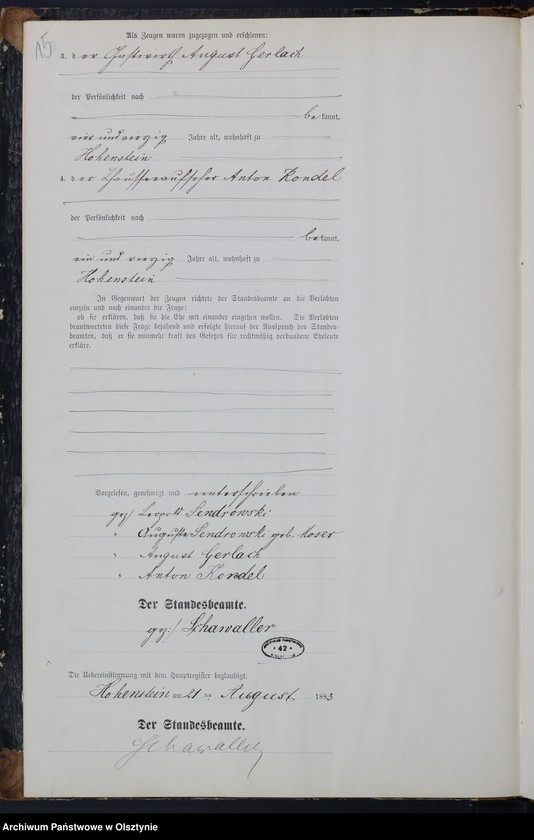 15
Als Zeugen waren zugezogen und erschienen:
3. der Gastwirth August Gerlach
der Persönlichkeit nach
bekannt,
ein und vierzig Jahre alt, wohnhaft zu
Hohenstein
4. der Chausseeaufseher Anton Kondel
der Persönlichkeit nach
bekannt,
ein und vierzig Jahre alt, wohnhaft zu
Hohenstein
In Gegenwart der Zeugen richtete der Standesbeamte an die Verlobten
einzeln und nach einander die Frage:
ob sie erklären, daß sie die Ehe mit einander eingehen wollen. Die Verlobten
beantworteten diese Frage bejahend und erfolgte hierauf der Ausspruch des Standes-
beamten, daß er sie nunmehr kraft des Gesetzes für rechtmäßig verbundene Eheleute
erkläre.
Vorgelesen, genehmigt und unterschrieben
gez/ Leopold Sendrowski
" Auguste Sendrowski geb. Moser
" August Gerlach
" Anton Kondel
Der Standesbeamte.
gez/ Schawaller
42
Die Uebereinstimmung mit dem Hauptregister beglaubigt.
Hohenstein am 21 ten August 1883
Der Standesbeamte.
Schawaller
Archiwum Państwowe w Olsztynie